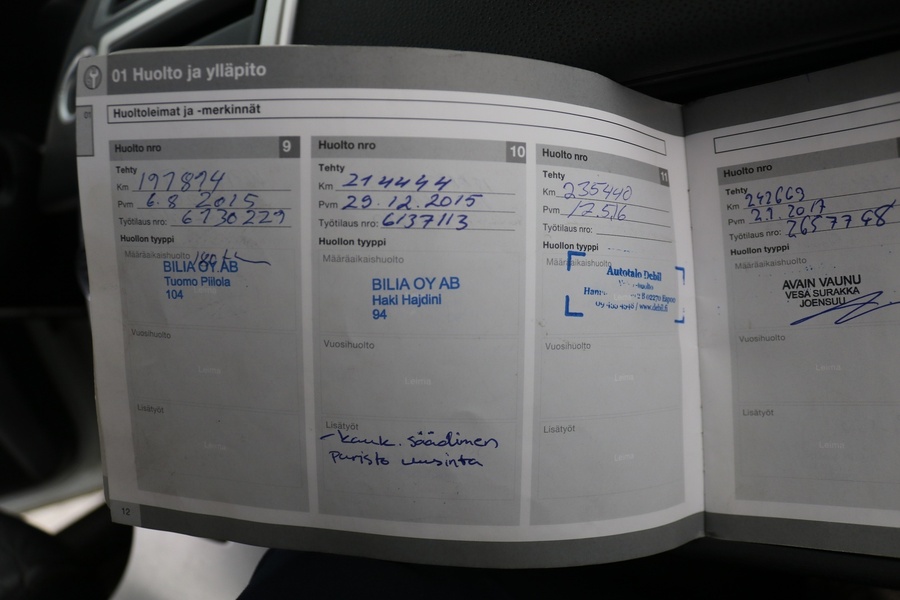 01 Huolto ja ylläpito
01
Huoltoleimat ja -merkinnät
Huolto nro 9
Tehty
Km 197894
Pvm 6.8 2015
Työtilaus nro: 6130229
Huollon tyyppi
Määräaikaishuolto
BILIA OY AB
Tuomo Piilola
104
Vuosihuolto
Leima
Lisätyöt
Leima
12
Huolto nro 10
Tehty
Km 214444
Pvm 29.12.2015
Työtilaus nro: 6137113
Huollon tyyppi
Määräaikaishuolto
BILIA OY AB
Haki Hajdini
94
Vuosihuolto
Leima
Lisätyöt
- kauk. säädimen
paristo uusinta
Huolto nro 11
Tehty
Km 235440
Pvm 17.5.16
Työtilaus nro:
Huollon tyyppi
Määräaikaishuolto
Autotalo Debil
02270 Espoo
/ www.debil.fi
Vuosihuolto
Leima
Lisätyöt
Leima
Huolto nro
Tehty
Km 242669
Pvm 2.1.2017
Työtilaus nro: 2657748
Huollon tyyppi
Määräaikaishuolto
AVAIN VAUNU
VESA SURAKKA
JOENSUU
Vuosihuolto
Leima
Lisätyöt
Leima